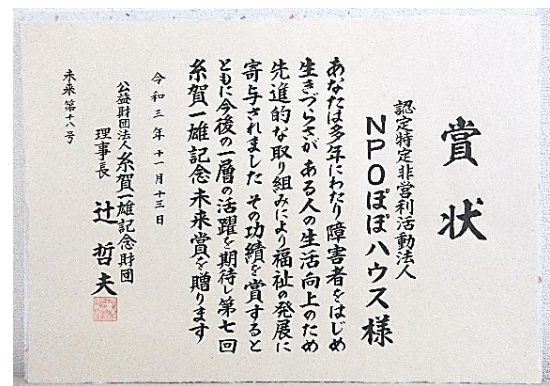 賞状
認定特定非営利活動法人
NPOぽぽハウス様
あなたは多年にわたり障害者をはじめ
生きづらさがある人の生活向上のため
先進的な取り組みにより福祉の発展に
寄与されました その功績を賞すると
ともに今後の一層の活躍を期待し第七回
糸賀一雄記念未来賞を贈ります
令和三年十一月十三日
公益財団法人糸賀一雄記念財団
理事長 辻哲夫
未来第十八号